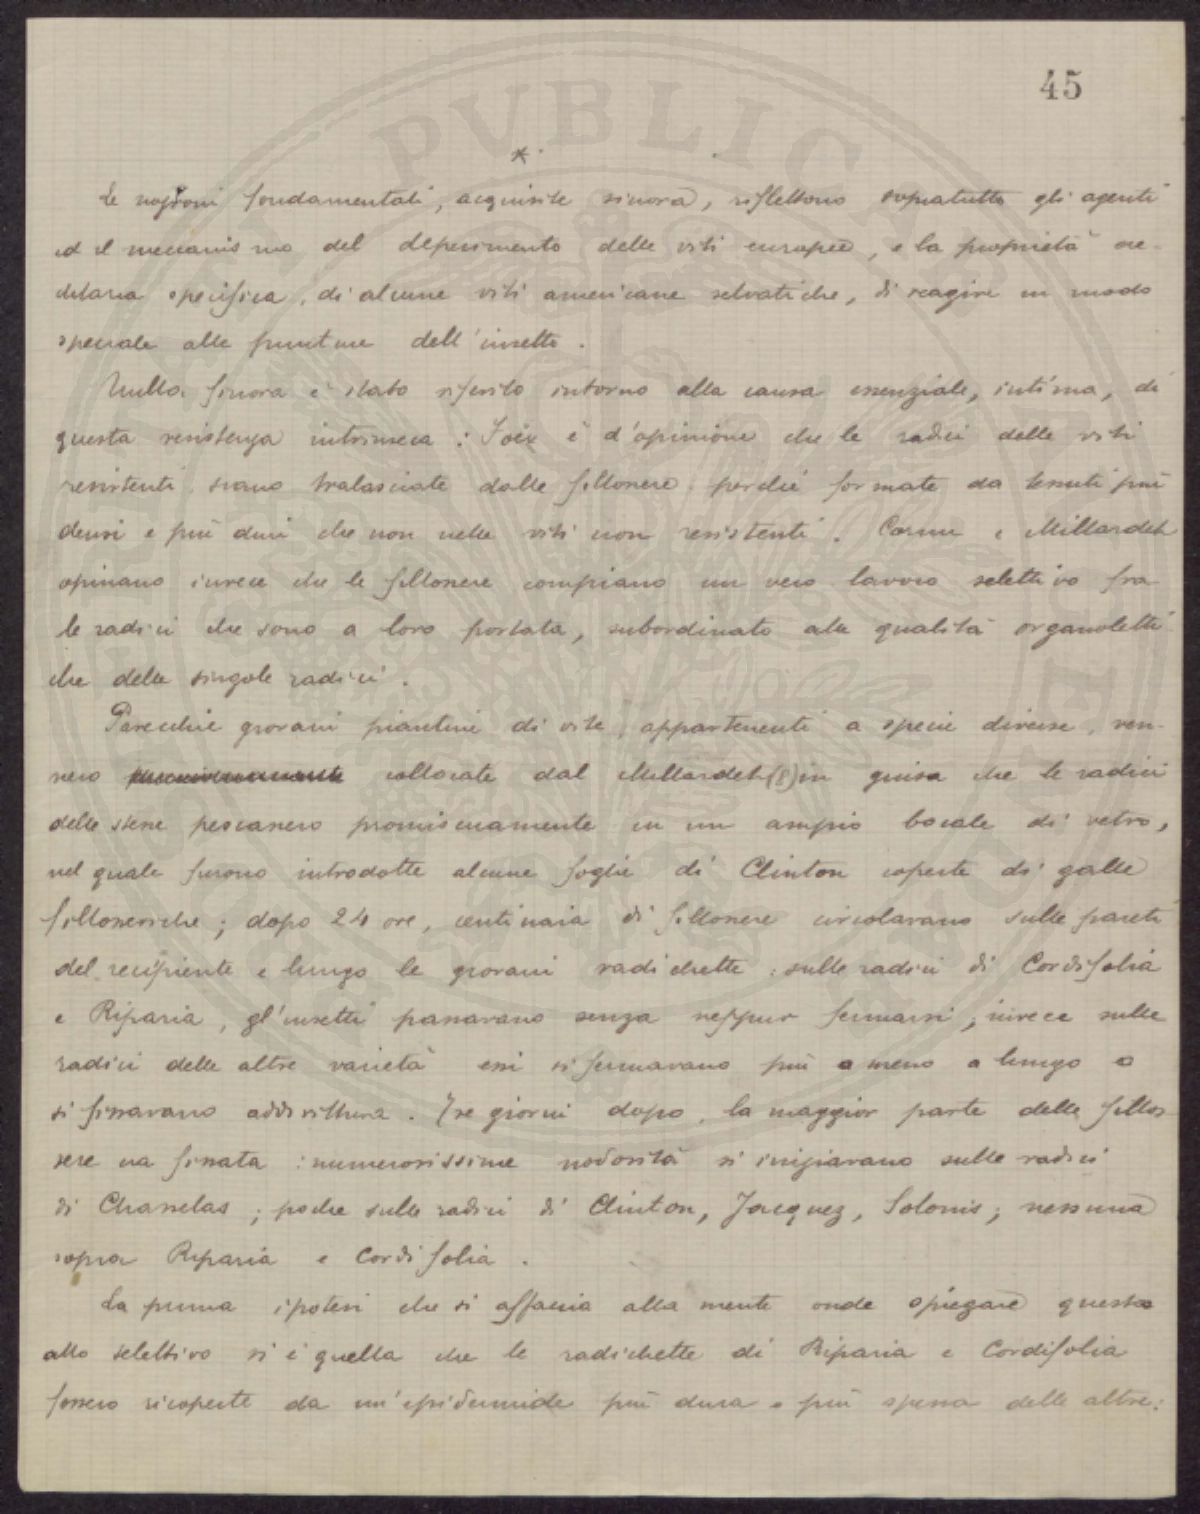 45
*
Le nozioni fondamentali, acquisite sinora, riflettono sopratutto gli agenti
ed il meccanismo del deperimento delle viti europee, e la proprietà ere-
ditaria specifica, di alcune viti americane selvatiche, di reagire in modo
speciale alle punture dell'insetto.
Nulla finora è stato riferito intorno alla causa essenziale, intima, di
questa resistenza intrinseca: Foëx è d'opinione che le radici delle viti
resistenti siano tralasciate dalle fillossere perchè formate da tessuti più
densi e più duri che non nelle viti non resistenti. Cornu e Millardet
opinano invece che le fillossere compiano un vero lavoro selettivo fra
le radici che sono a loro portata, subordinato alle qualità organoletti
che delle singole radici.
Parecchie giovani piantine di vite, appartenenti a specie diverse, ven-
nero collocate dal Millardet (8) in guisa che le radici
delle stesse pescassero promiscuamente in un ampio bocale di vetro,
nel quale furono introdotte alcune foglie di Clinton coperte di galle
fillosseriche; dopo 24 ore, centinaia di fillossere circolavano sulle pareti
del recipiente e lungo le giovani radichette: sulle radici di Cordifolia
e Riparia, gl'insetti passavano senza neppur fermarsi; invece sulle
radici delle altre varietà essi si fermavano più o meno a lungo o
si fissavano addirittura. Tre giorni dopo, la maggior parte delle fillos
sere era fissata: numerosissime nodosità si iniziavano sulle radici
di Chasselas; poche sulle radici di Clinton, Jacquez, Solonis; nessuna
sopra Riparia e Cordifolia.
La prima ipotesi che si affaccia alla mente onde spiegare questo
atto selettivo si è quella che le radichette di Riparia e Cordifolia
fossero ricoperte da un'epidermide più dura e più spessa delle altre:
PVBLIC